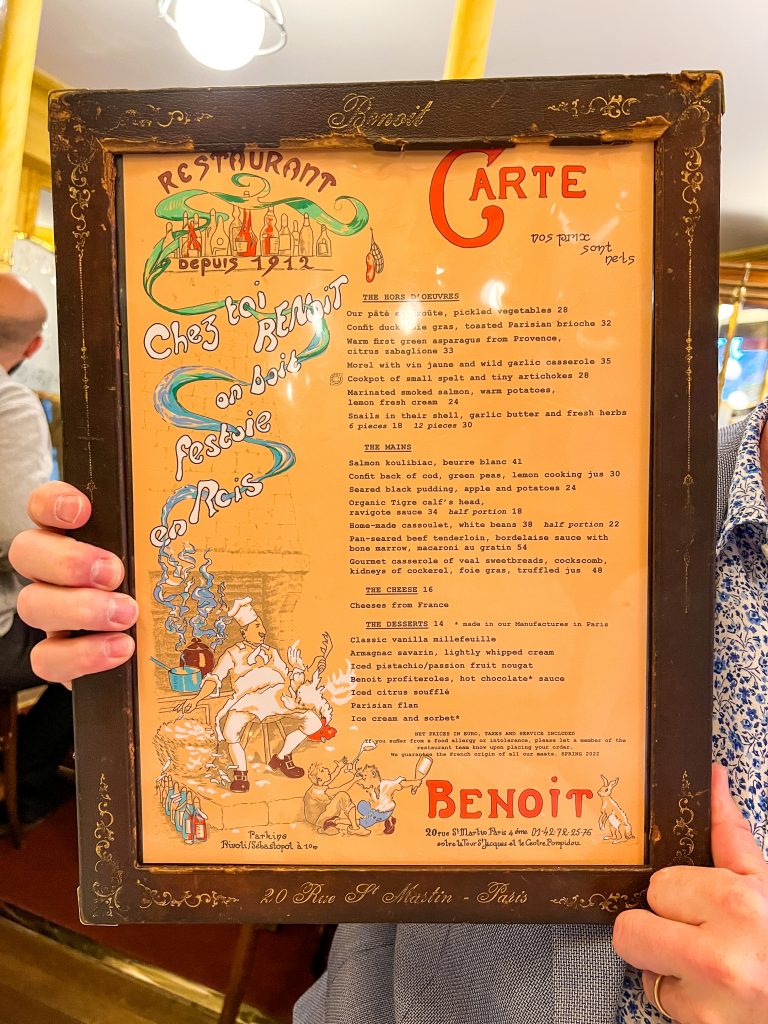 Benoit
RESTAURANT
DEPUIS 1912
CARTE
nos prix
sont
nets
Chez toi
BENOIT
on boit
festoie
en Rois
THE HORS D'OEUVRES
Our pâté croûte, pickled vegetables 28
Confit duck foie gras, toasted Parisian brioche 32
Warm first green asparagus from Provence,
citrus zabaglione 33
Morel with vin jaune and wild garlic casserole 35
Cookpot of small spelt and tiny artichokes 28
Marinated smoked salmon, warm potatoes,
lemon fresh cream 24
Snails in their shell, garlic butter and fresh herbs
6 pieces 18 12 pieces 30
THE MAINS
Salmon koulibiac, beurre blanc 41
Confit back of cod, green peas, lemon cooking jus 30
Seared black pudding, apple and potatoes 24
Organic Tigre calf's head,
ravigote sauce 34 half portion 18
Home-made cassoulet, white beans 38 half portion 22
Pan-seared beef tenderloin, bordelaise sauce with
bone marrow, macaroni au gratin 54
Gourmet casserole of veal sweetbreads, cockscomb,
kidneys of cockerel, foie gras, truffled jus 48
THE CHEESE 16
Cheeses from France
THE DESSERTS 14 * made in our Manufactures in Paris
Classic vanilla millefeuille
Armagnac savarin, lightly whipped cream
Iced pistachio/passion fruit nougat
Benoit profiteroles, hot chocolate* sauce
Iced citrus soufflé
Parisian flan
Ice cream and sorbet*
NET PRICES IN EURO, TAXES AND SERVICE INCLUDED
If you suffer from a food allergy or intolerance, please let a member of the
restaurant team know upon placing your order.
We guarantee the French origin of all our meats. SPRING 2022
BENOIT
20 rue St Martin Paris 4ème 01-42-72-25-76
entre la Tour St Jacques et le Centre Pompidou.
Parking
Rivoli/Sébastopol à 10m
20 Rue St Martin - Paris